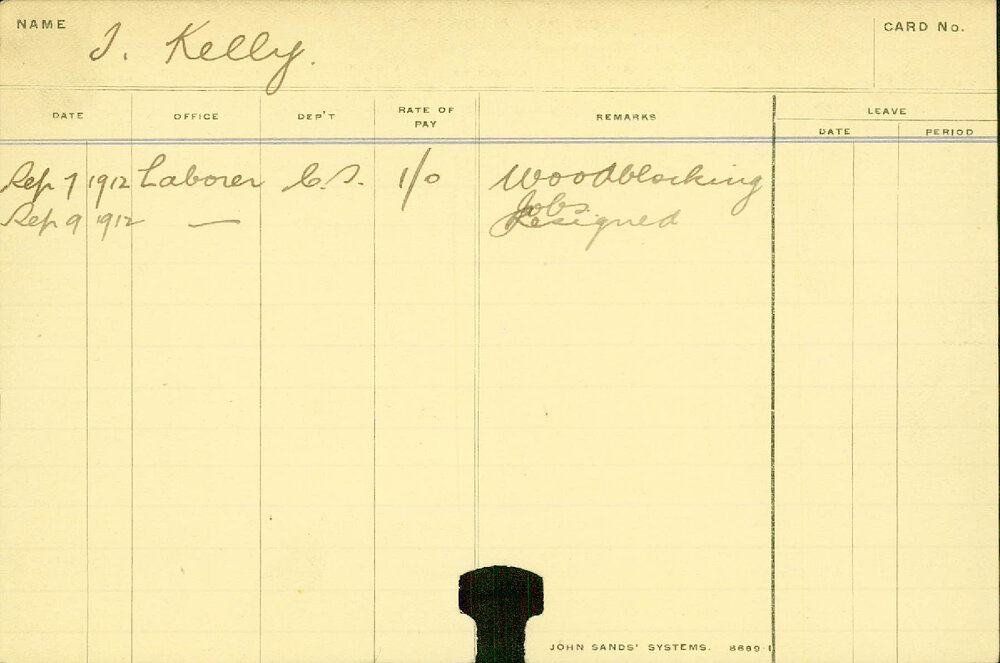 NAME J. Kelly. CARD No.
DATE OFFICE DEP'T RATE OF PAY REMARKS LEAVE
DATE PERIOD
Sep 7 1912 Laborer C.S. 1/0 Woodblocking
Jobs
Sep 9 1912 — Resigned
JOHN SANDS' SYSTEMS. 8689-1